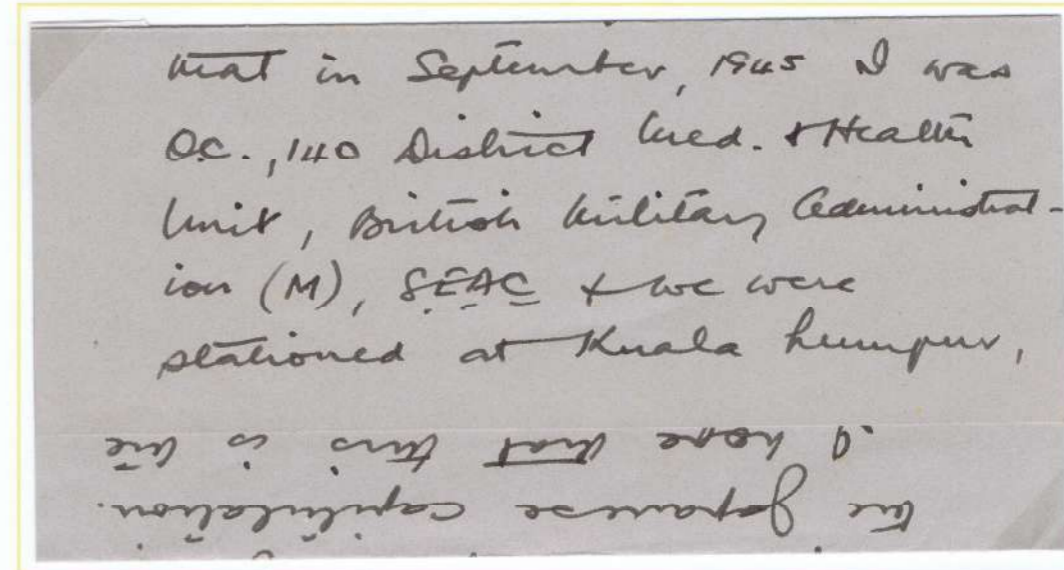 that in September, 1945 I was
O.C., 140 District Med. & Health
Unit, British Military Administrat-
ion (M), SEAC & we were
stationed at Kuala Lumpur,
the Japanese capitulation.
I hope that this is the